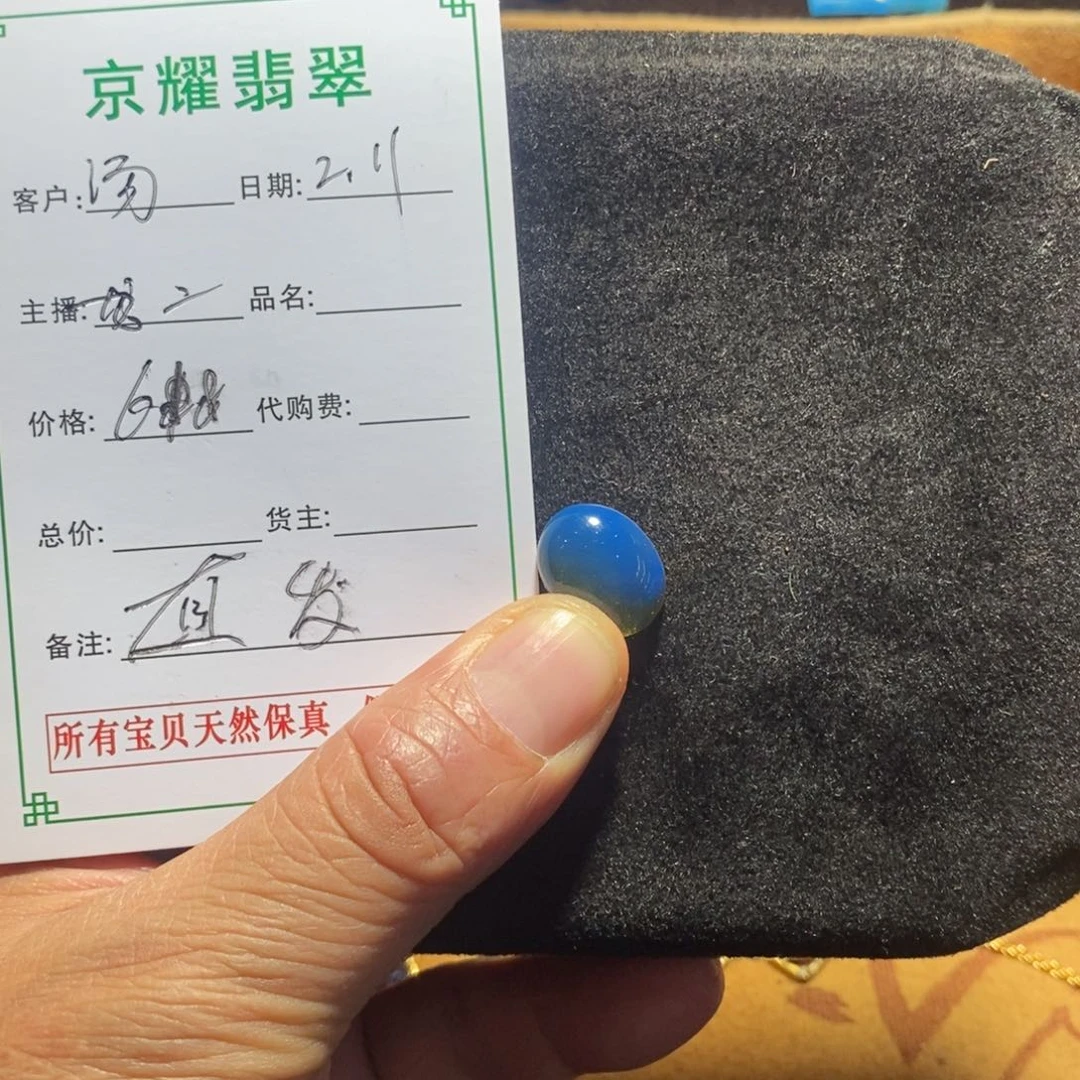 京耀翡翠
客户:汤 日期:2.11
主播: 二 品名:
价格: 代购费:
总价: 货主:
备注:直发
所有宝贝天然保真